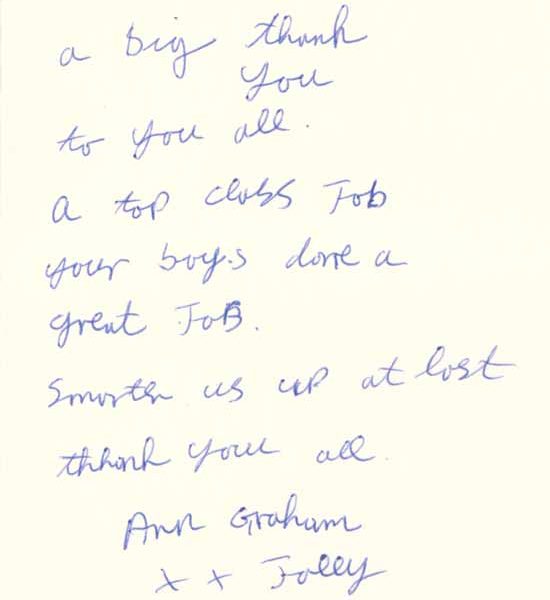 a big thank
you
to you all.
A top class Job
your boys done a
great JoB.
Smarten us up at last
thhank you all.
Ann Graham
x x Jolly